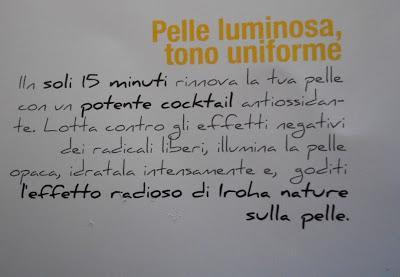 Pelle luminosa,
tono uniforme
IIn soli 15 minuti rinnova la tua pelle
con un potente cocktail antiossidan-
te. Lotta contro gli effetti negativi
dei radicali liberi, illumina la pelle
opaca, idratala intensamente e, goditi
l'effetto radioso di Iroha nature
sulla pelle.